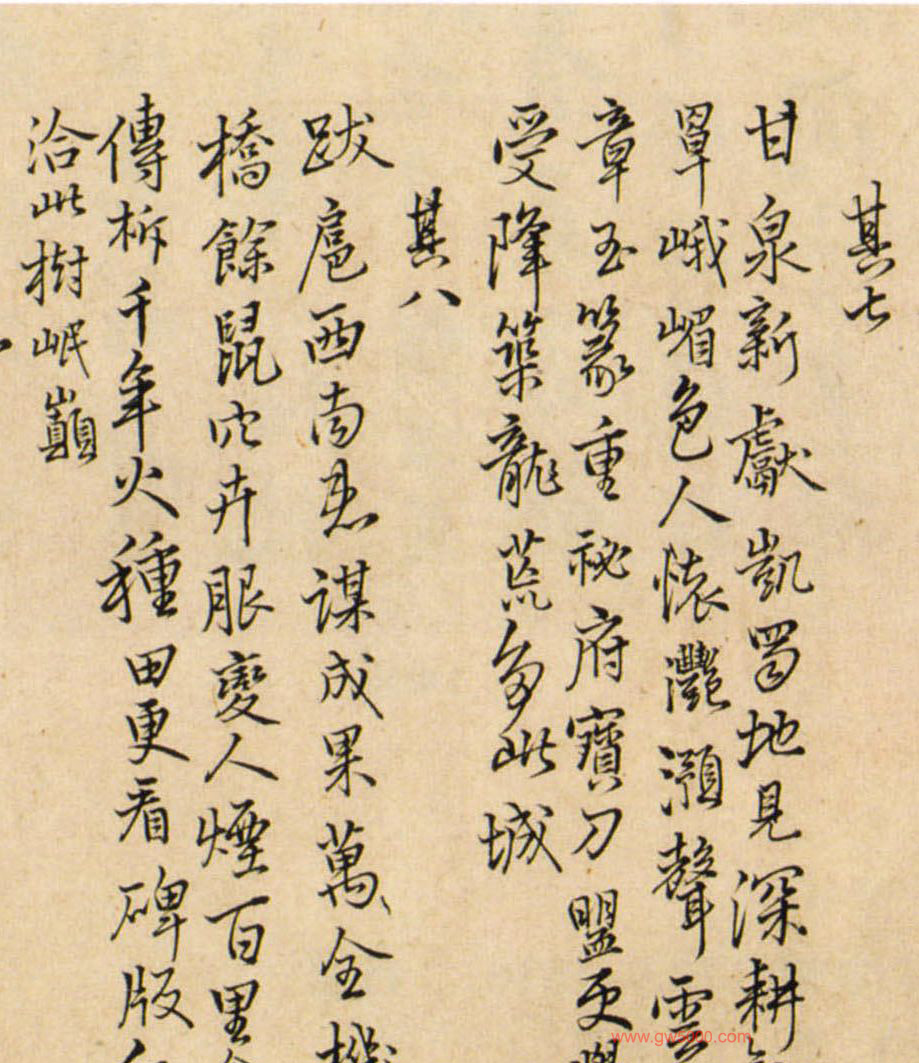 其七
甘泉新獻凱蜀地見深耕
罩峨嵋色人懷灩澦聲雲
章玉篆重祕府寶刀盟更
受降築龍荒多此城
其八
跋扈西南患謀成果萬全
橋餘鼠穴卉服變人煙百里
傳柝千年火種田更看碑版
洽此樹岷巔
www.gws000.com